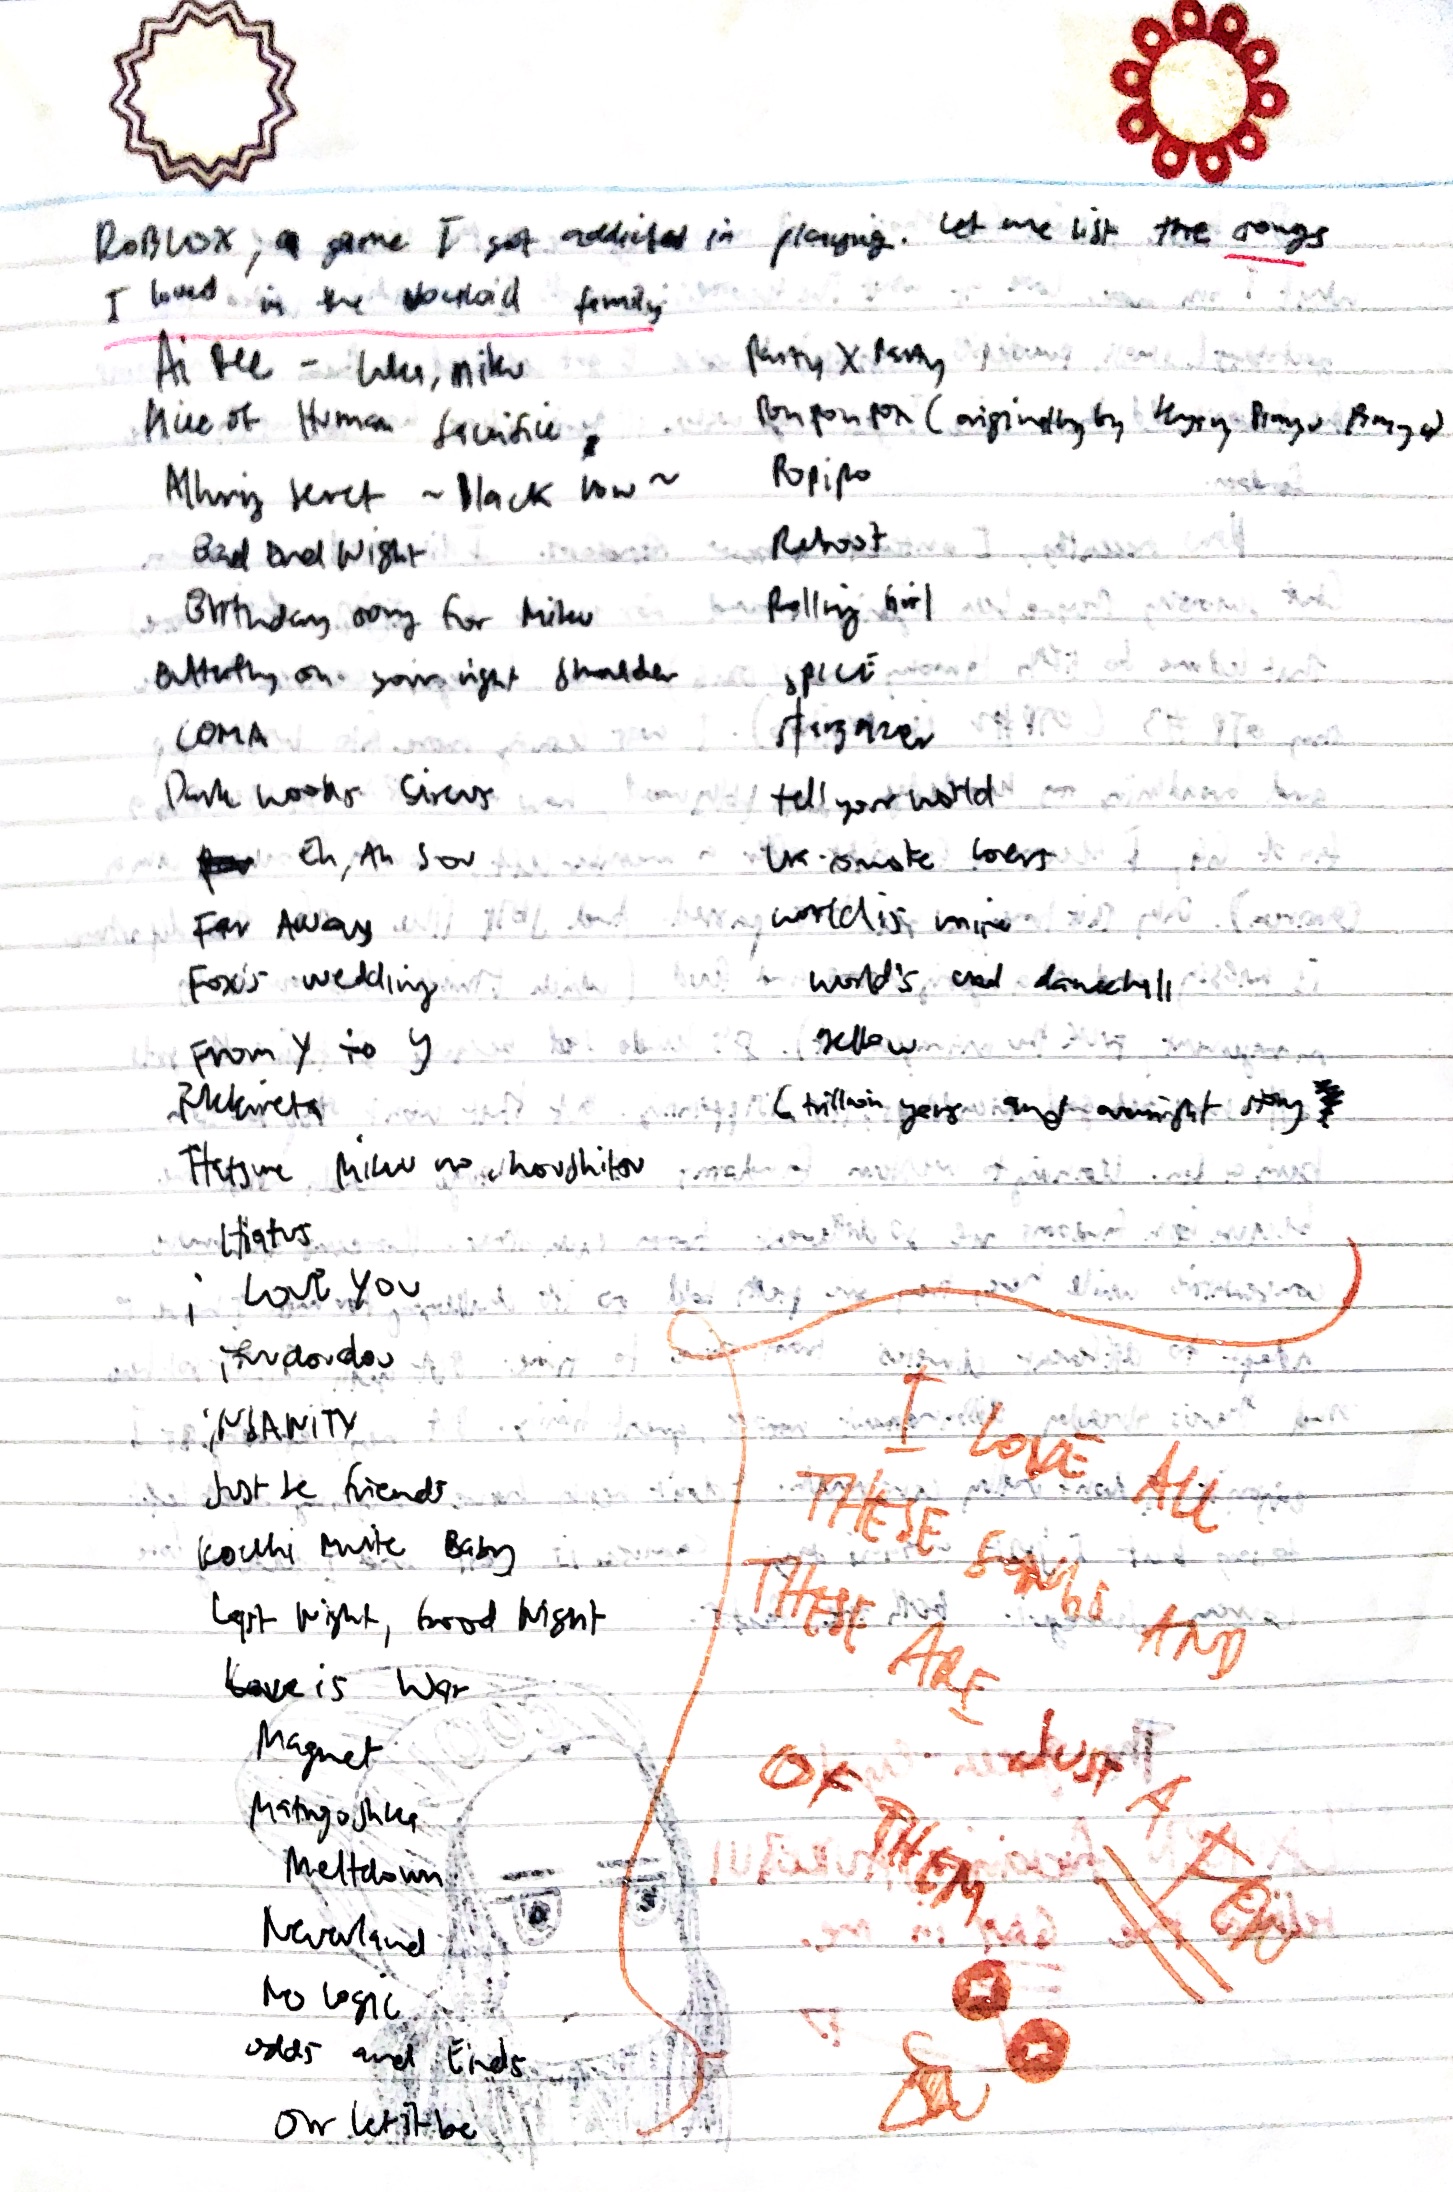 ROBLOX, a game I got addicted in playing. Let me list the songs
I loved in the Vocaloid family
Ai Dee - Luka, Miku
Alice of Human Sacrifice
Alluring Secret ~Black Vow~
Bad End Night
Birthday song for Miku
Butterfly on your right shoulder
COMA
Dark Woods Circus
Eh, Ah Sou
Far Away
Fox's wedding
From Y to Y
Hatsune Miku no Shoushitsu
Hiatus
i Love You
iNSANITY
Just be friends
Kocchi Muite Baby
Last Night, Good Night
Love is War
Magnet
Matryoshka
Meltdown
Neverland
No Logic
Odds and Ends
Our let it be
Party X Party
Ponponpon (originally by Kyary Pamyu Pamyu)
Popipo
Reboot
Rolling Girl
SPiCE
Stargazer
tell your world
Ura omote lovers
world is mine
world's end dancehall
Yellow
6 trillion years and overnight story
I LOVE ALL
THESE SONGS AND
THESE ARE
JUST A TEN
OF THEM